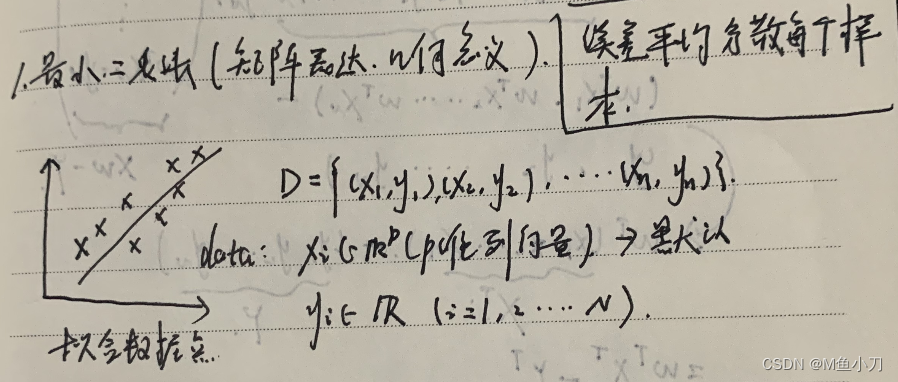 1.最小二乘法(矩阵表达.几何意义).
误差平均分散每个样
本.
D={(x₁,y₁),(x₂,y₂),.....(xₙ,yₙ)}.
data: xᵢ∈ℝᵖ(p维列向量)→默认
yᵢ∈ℝ (i=1,2....N).
拟合数据点.
CSDN @M鱼小刀